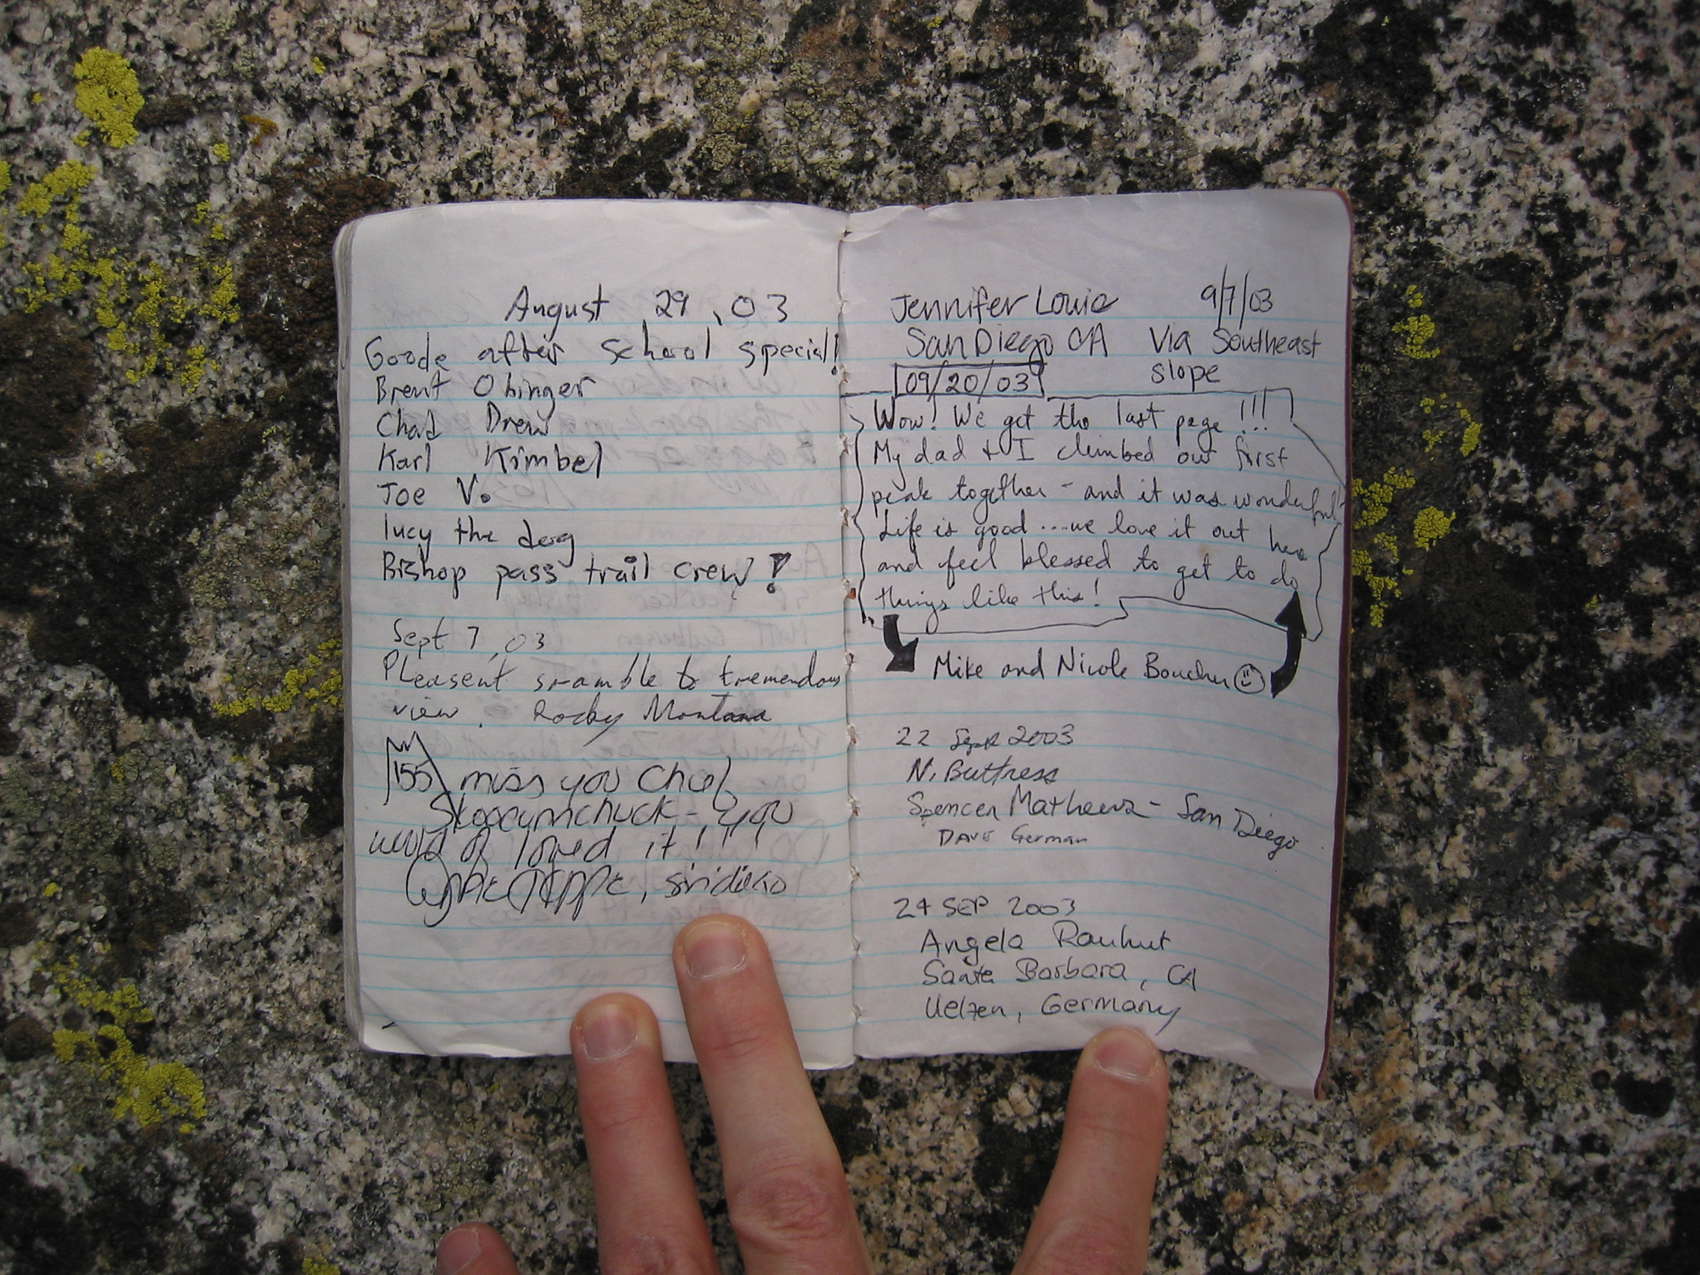 August 29, 03
Goode after school special!
Brent Obinger
Chad Drew
Karl Kimbel
Joe V.
lucy the dog
Bishop pass trail crew!
Sept 7, 03
Pleasent sramble to tremendous
view. Rocky Montana
155 miss you Chief
Skoocumchuck -
would of loved it!!!!
Jennifer Louie 9/7/03
San Diego CA Via Southeast
slope
09/20/03
Wow! We get the last page!!!
My dad & I climbed our first
peak together - and it was wonderful
Life is good ... we love it out here
and feel blessed to get to do
things like this!
Mike and Nicole Boucher
22 Sept 2003
N. Buttress
Spencer Mathews - San Diego
Dave German
24 SEP 2003
Angela Rauhut
Santa Barbara, CA
Uelzen, Germany